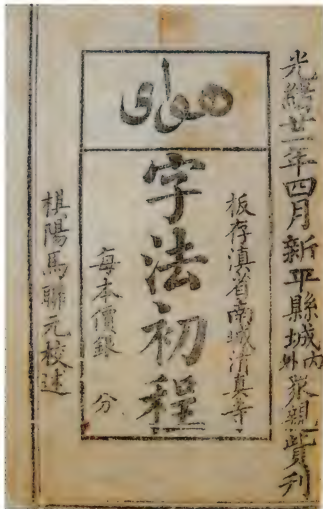 光緒廿一年四月新平縣城內外衆親貲刊
هوای
板存滇省南城清真寺
字法初程
每本價銀 分
棋陽馬聯元校述